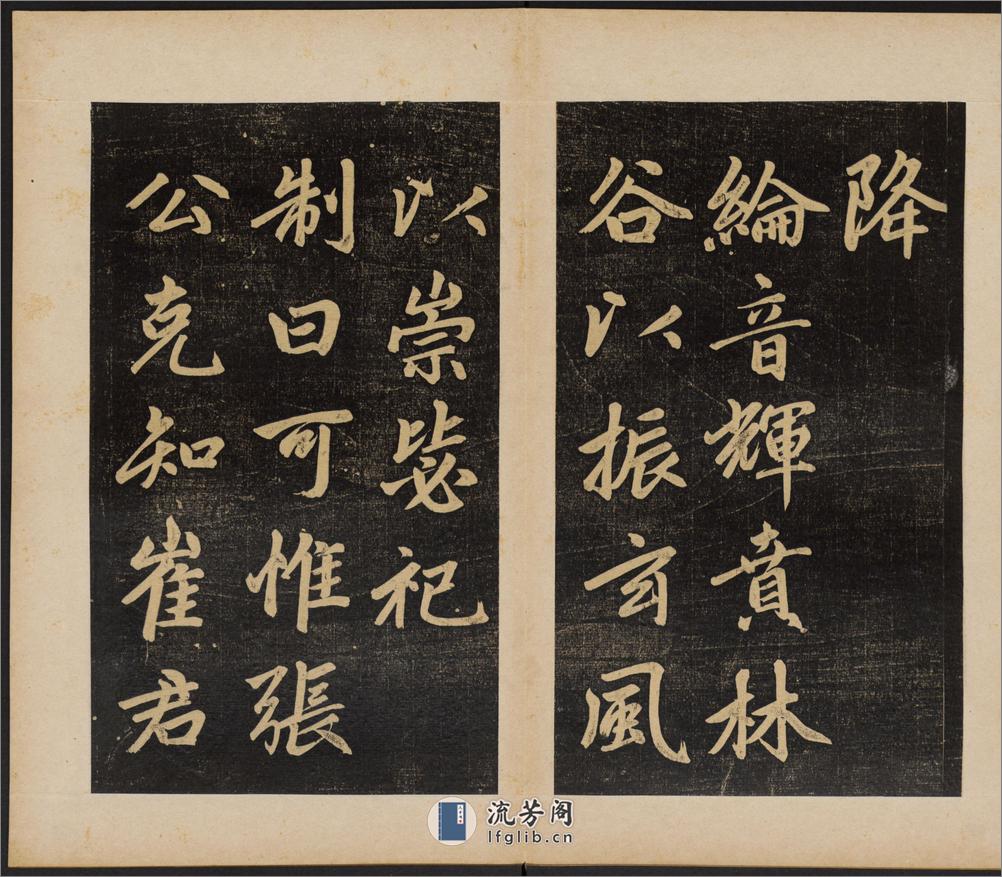 降
綸音輝賁林
谷以振玄風
以崇毖祀
制曰可惟張
公克知崔君
流芳阁
lfglib.cn